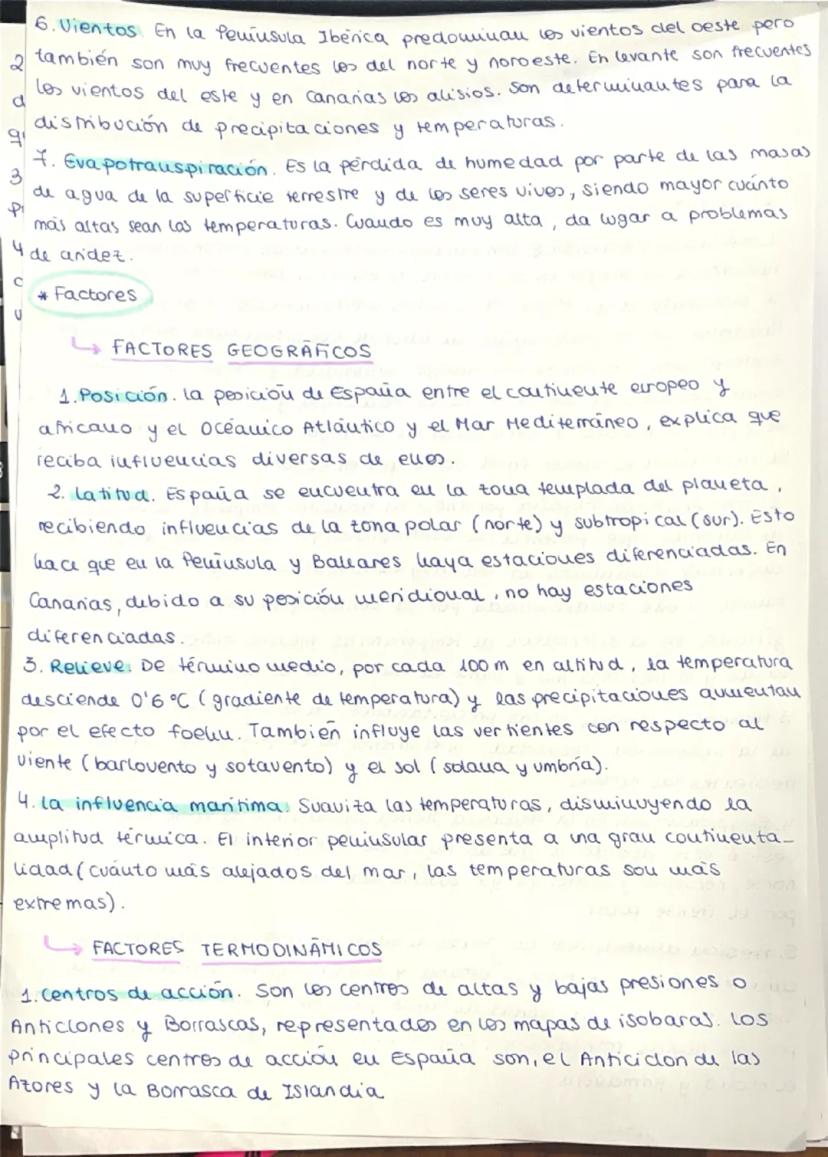 6. Vientos. En la Península Ibérica predominan los vientos del oeste pero
también son muy frecuentes los del norte y noroeste. En levante son frecuentes
los vientos del este y en Canarias los alisios. Son determinantes para la
distribución de precipitaciones y temperaturas.
7. Evapotranspiración. Es la pérdida de humedad por parte de las masas
de agua de la superficie terrestre y de los seres vivos, siendo mayor cuánto
más altas sean las temperaturas. Cuando es muy alta, da lugar a problemas
de aridez.
* Factores
↳ FACTORES GEOGRÁFICOS
1. Posición. La posición de España entre el continente europeo y
africano y el Océanico Atlántico y el Mar Mediterráneo, explica que
reciba influencias diversas de ellos.
2. Latitud. España se encuentra en la zona templada del planeta,
recibiendo influencias de la zona polar (norte) y subtropical (sur). Esto
hace que en la Península y Baleares haya estaciones diferenciadas. En
Canarias, debido a su posición meridional, no hay estaciones
diferenciadas.
3. Relieve. De término medio, por cada 100 m en altitud, la temperatura
desciende 0'6 ºC (gradiente de temperatura) y las precipitaciones aumentan
por el efecto foehn. También influye las vertientes con respecto al
viente (barlovento y sotavento) y el sol (solana y umbría).
4. La influencia marítima. Suaviza las temperaturas, disminuyendo la
amplitud térmica. El interior peninsular presenta a una gran continenta_
lidad (cuánto más alejados del mar, las temperaturas son más
extremas).
↳ FACTORES TERMODINÁMICOS
1. Centros de acción. Son los centros de altas y bajas presiones o
Anticlones y Borrascas, representados en los mapas de isobaras. Los
principales centros de acción en España son, el Anticiclon de las
Azores y la Borrasca de Islandia